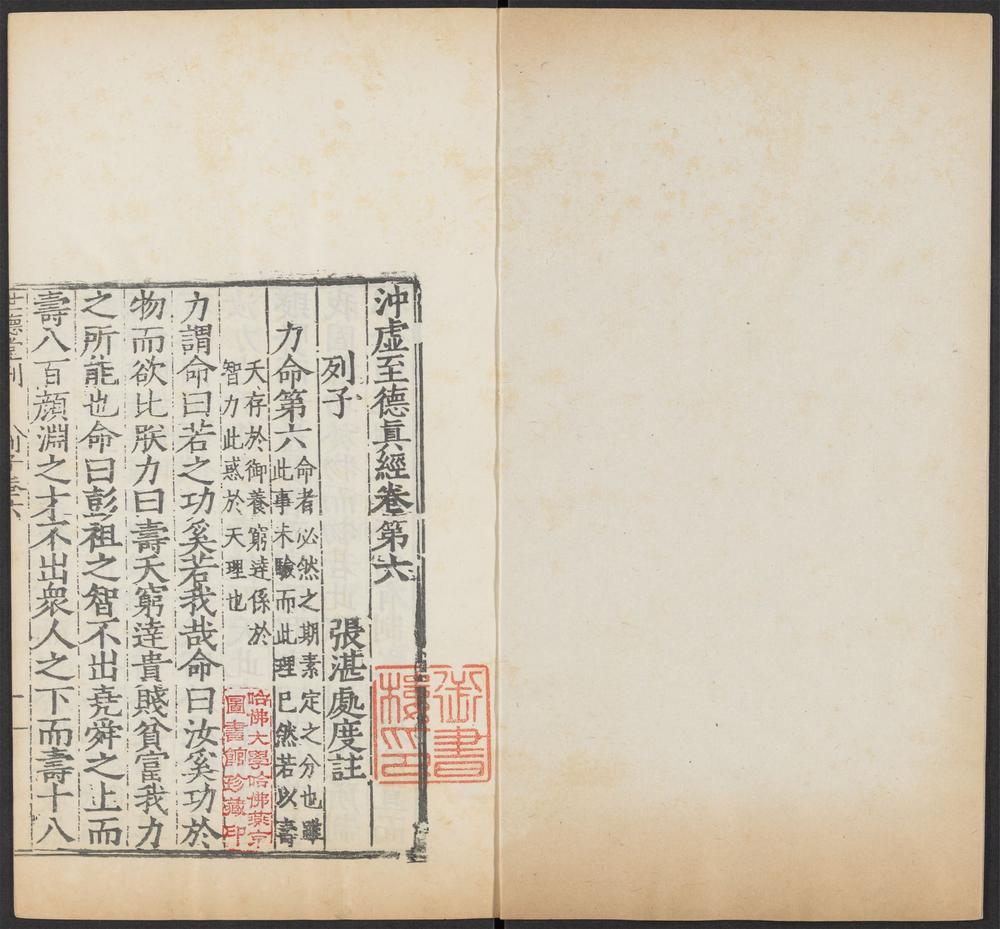 沖虛至德眞經卷第六
列子　張湛處度註
力命第六
命者必然之期素定之分也雖
此事未驗而此理已然若以壽
夭存於御養窮逹係於
智力此惑於天理也
力謂命曰若之功奚若我哉命曰汝奚功於
物而欲比朕力曰壽夭窮逹貴賤貧富我力
之所能也命曰彭祖之智不出堯舜之上而
壽八百顔淵之才不出衆人之下而壽十八
世德堂刊
列子卷六
一
哈佛大學哈佛燕京
圖書館珍藏印
御書